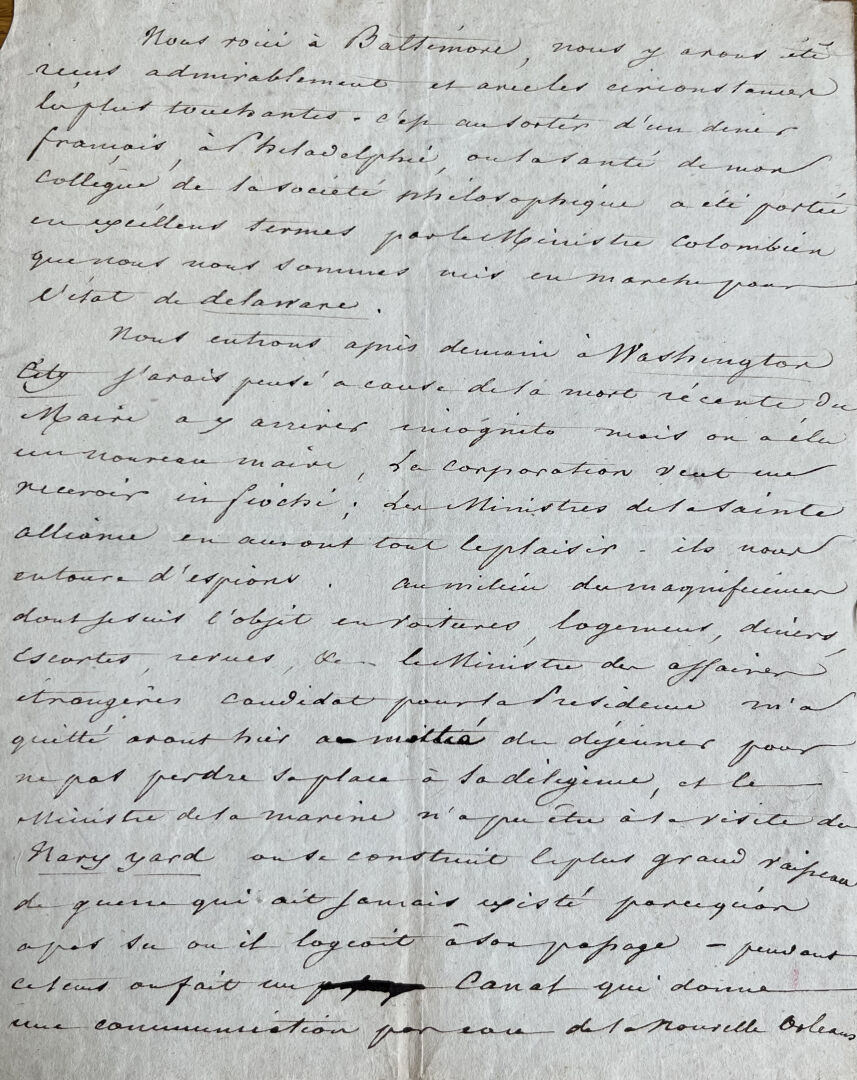 Nous voici à Baltimore, nous y avons été
recus admirablement et avec les circonstances
les plus touchantes. c'est au sortir d'un diner
francais, à Philadelphie, ou la santé de mon
collègue de la société philosophique a été portée
en excellens termes par le Ministre Colombien
que nous nous sommes mis en marche pour
l'état de delaware.
Nous entrons après demain à Washington
City j'avais pensé a cause de la mort récente du
Maire a y arriver incógnito mais on a élu
un nouveau maire, La corporation veut me
recevoir in fiochi; Les Ministres de la Sainte
alliance en auront tout le plaisir. ils nous
entoure d'espions. au milieu des magnificences
dont je suis l'objet en voitures, logemens, diners,
escortes, revues, &c— le Ministre des affaires
étrangères candidat pour la Presidence m'a
quitté avant hier a moitié du déjeuner pour
ne pas perdre sa place à sa diligence, et le
Ministre de la marine n'a pu être à la visite du
Navy yard ou se construit le plus grand vaisseau
de guerre qui ait jamais existé parcequ'on
a pas su ou il logeoit à son passage — pendant
ce tems on fait un Canal qui donne
une communication par eau de la Nouvelle Orleans